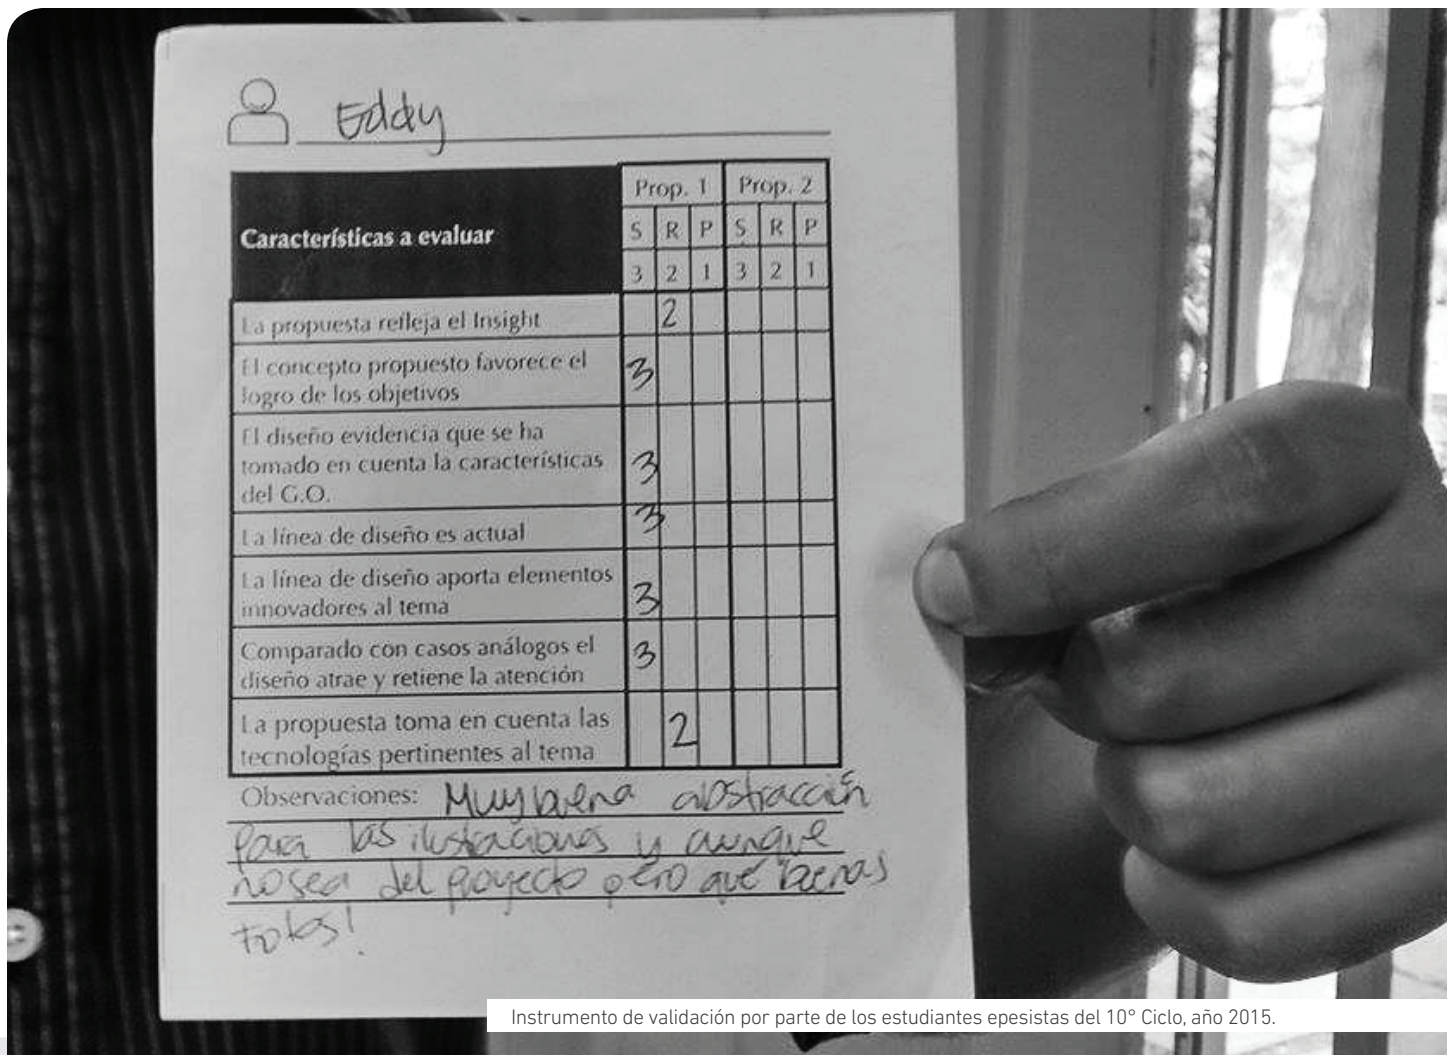 Eddy
Prop. 1 Prop. 2
Características a evaluar
S R P S R P
3 2 1 3 2 1
La propuesta refleja el Insight 2
El concepto propuesto favorece el
logro de los objetivos 3
El diseño evidencia que se ha
tomado en cuenta la características 3
del G.O.
La línea de diseño es actual 3
La línea de diseño aporta elementos
innovadores al tema 3
Comparado con casos análogos el 3
diseño atrae y retiene la atención
La propuesta toma en cuenta las 2
tecnologías pertinentes al tema
Observaciones: Muy buena abstracción
para las ilustraciones y aunque
no sea del proyecto pero qué buenas
fotos!
Instrumento de validación por parte de los estudiantes epesistas del 10° Ciclo, año 2015.